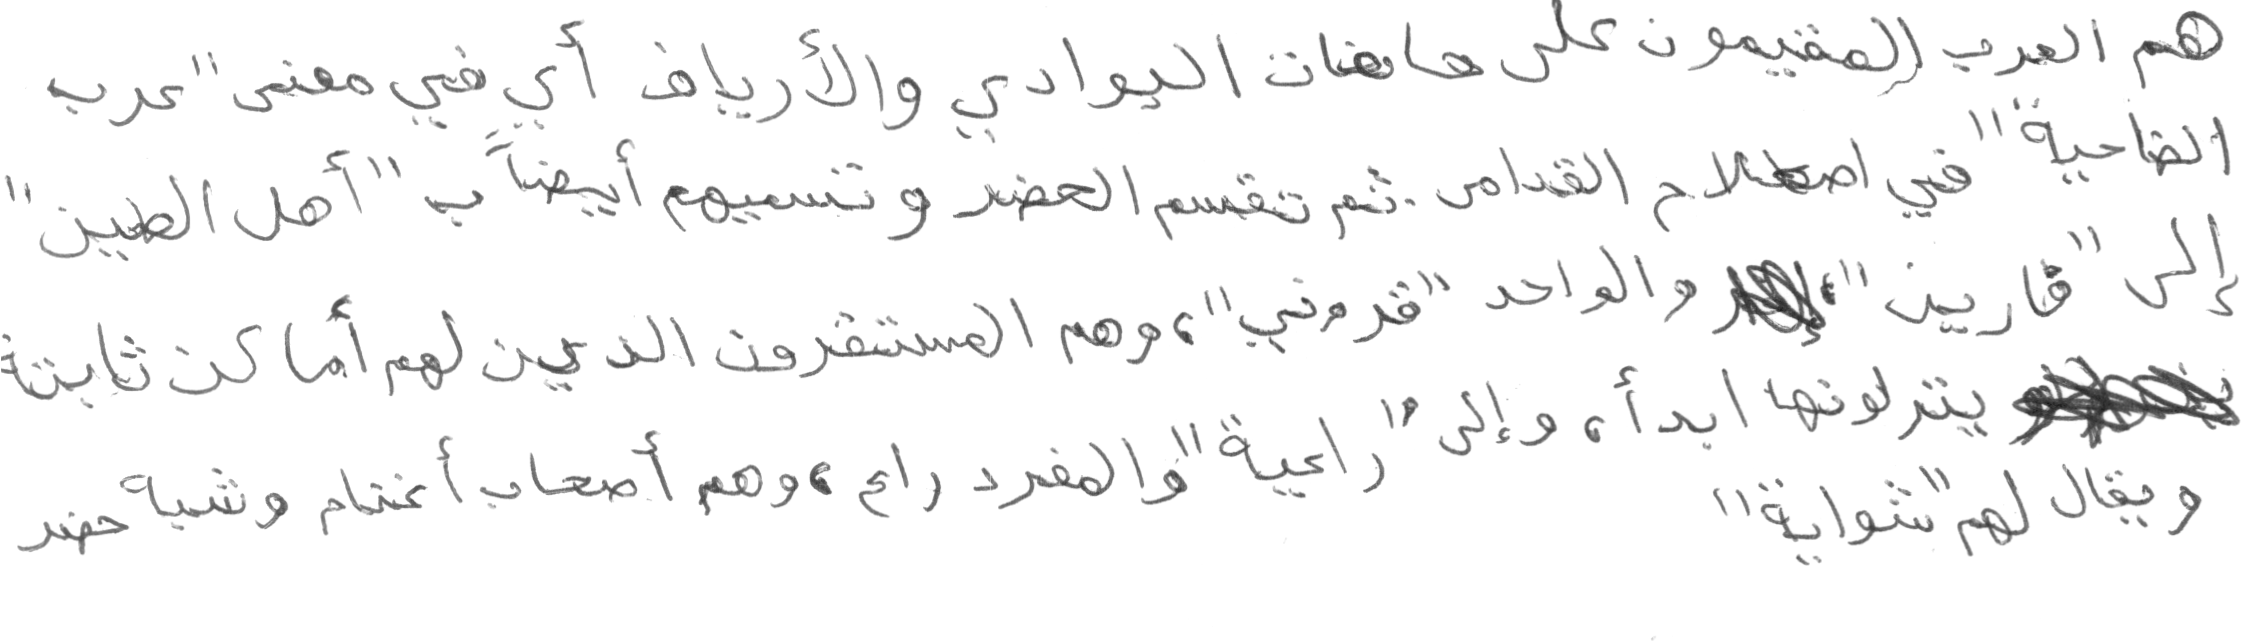 هم العرب المقيمون على حافات البوادي والأرياف أي في معنى "عرب
الضاحية" في اصطلاح القدامى. ثم تقسم الحضر وتسميهم أيضاً ب "أهل الطين"
إلى "قارين"، والواحد "قروني"، وهم المستقرون الذين لهم أماكن ثابتة
ينزلونها ابدأ، وإلى "راعية" والمفرد راع، وهم أصحاب أغنام وشبه حضر
ويقال لهم "شواية"